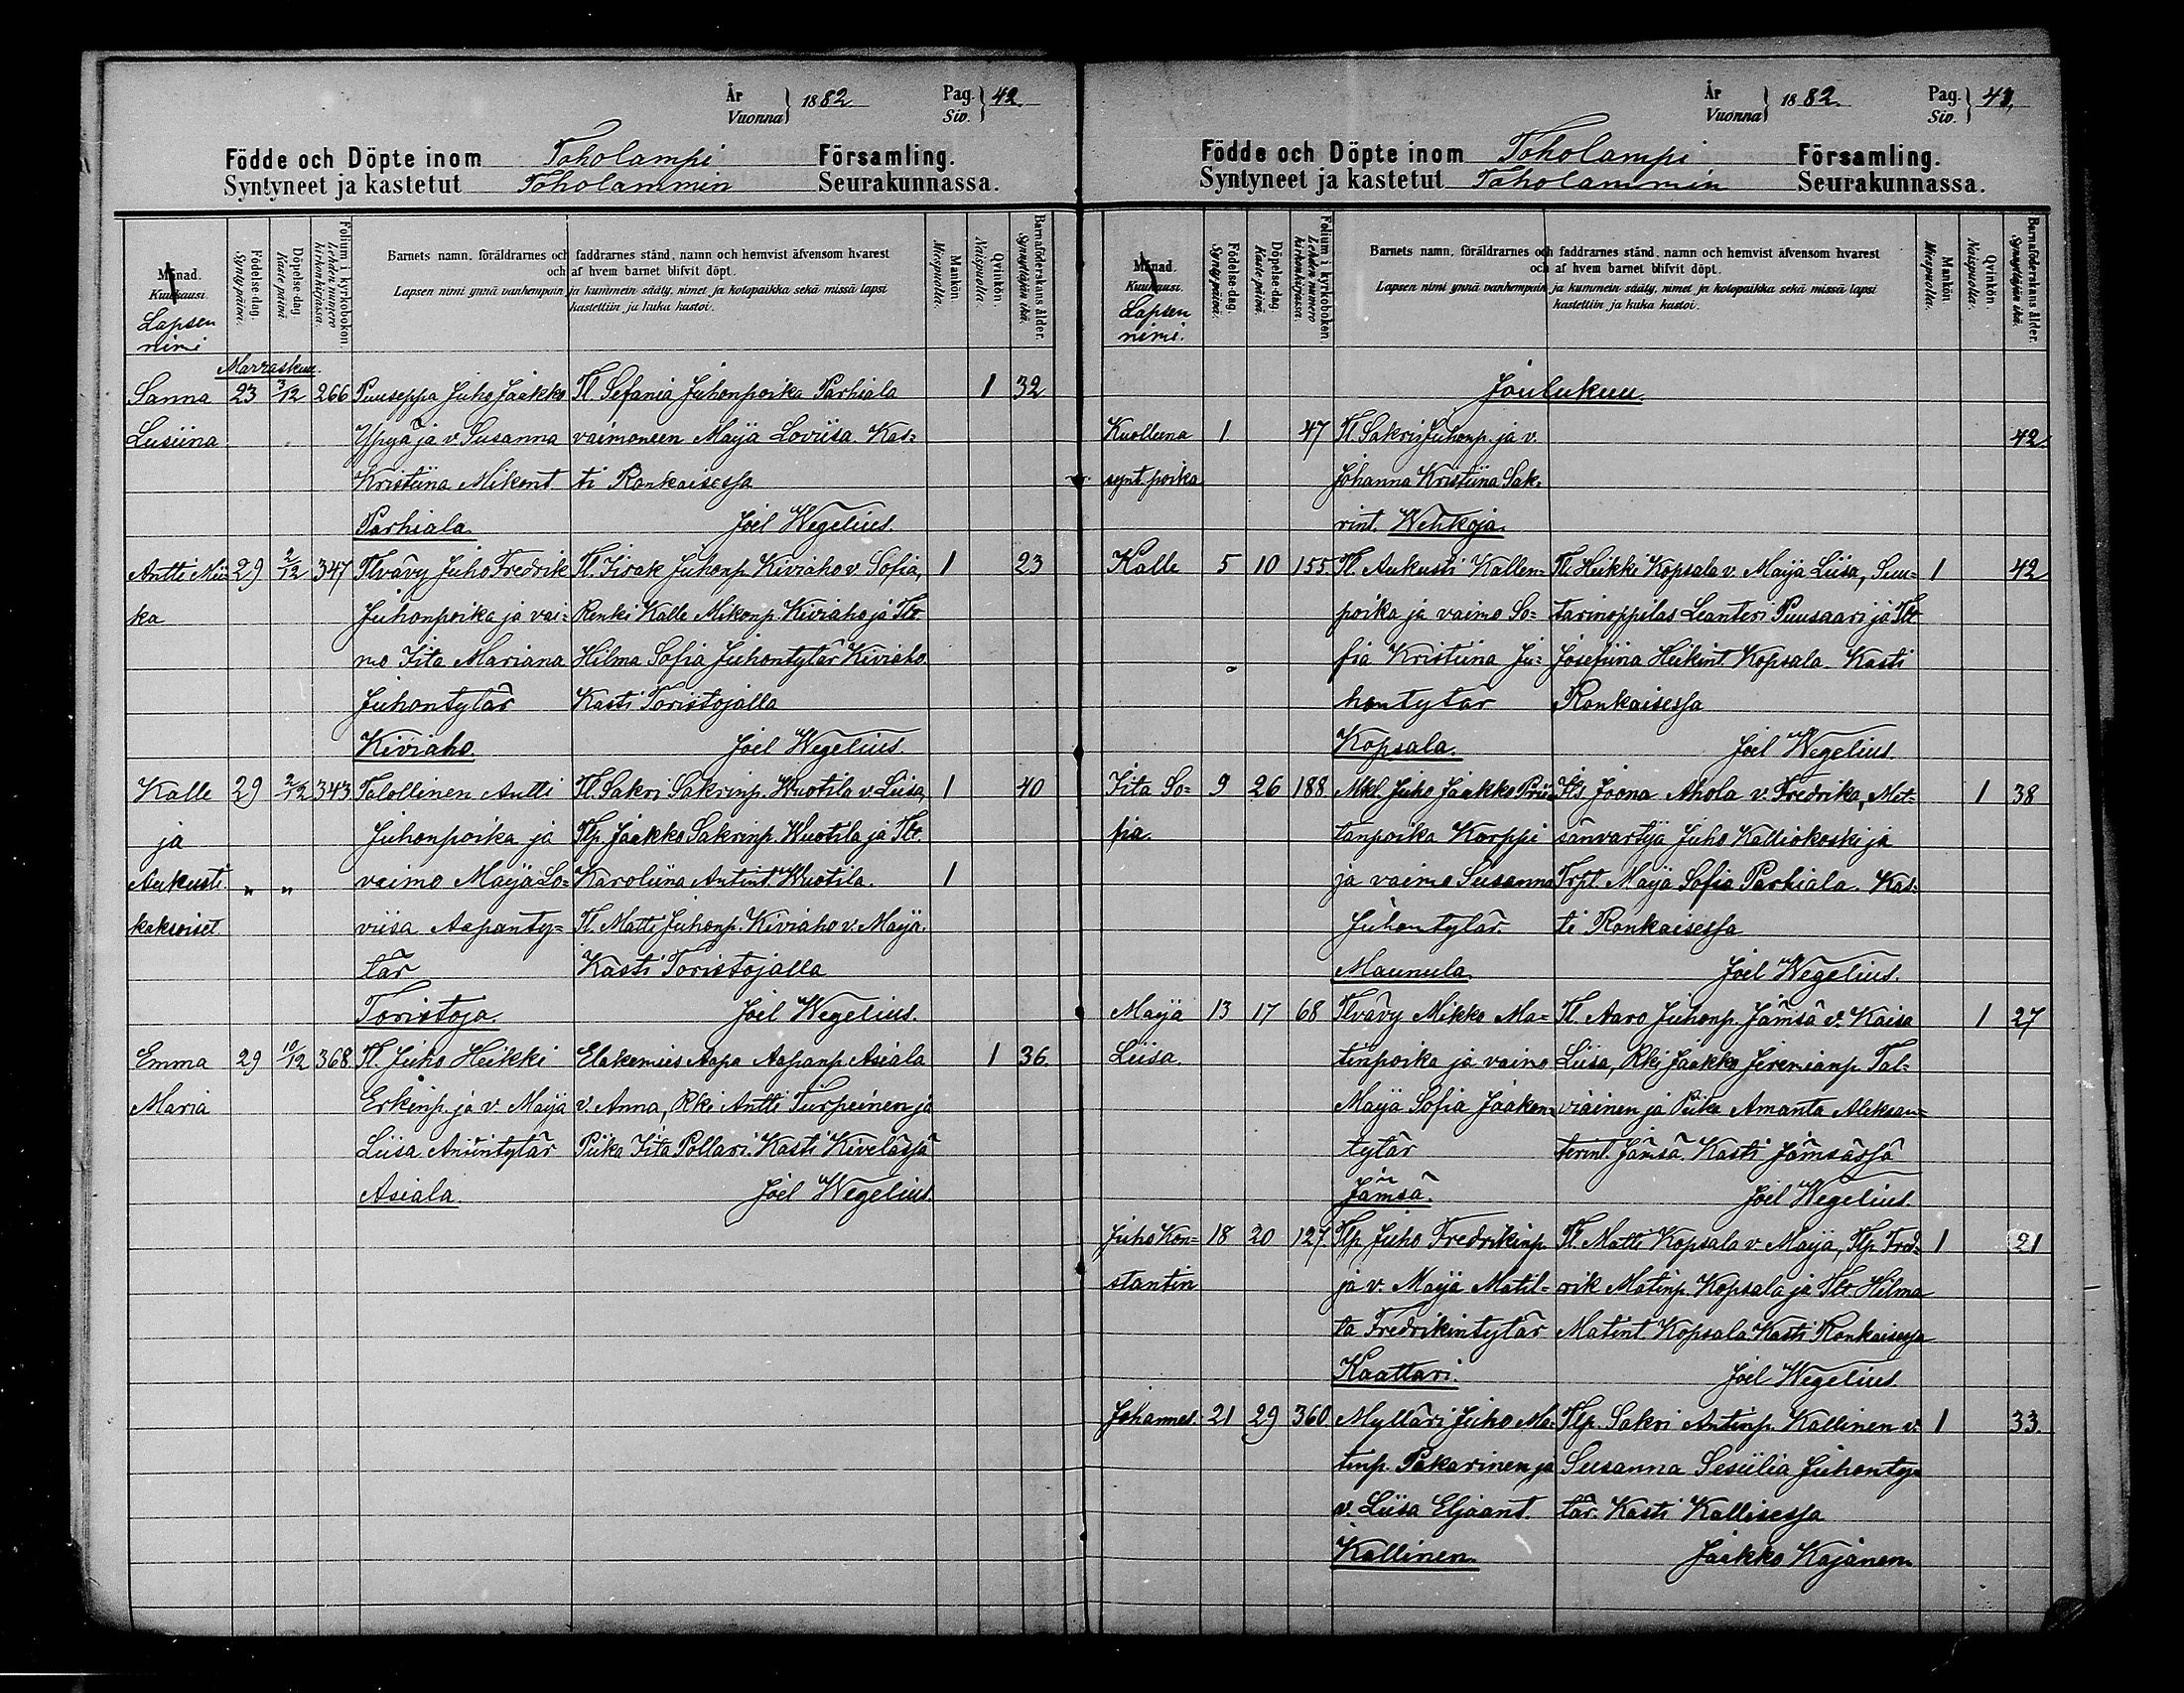 År
Vuonna } 1882. Pag.
Siv. } 42.
Födde och Döpte inom Toholampi Församling.
Syntyneet ja kastetut Toholammin Seurakunnassa.
Månad.
Kuukausi.
Lapsen
nimi
Födelse-dag.
Synty päivä.
Döpelse-dag.
Kaste päivä
Folium i kyrkoboken
Lehden numero
kirkonkirjassa.
Barnets namn, föräldrarnes och faddrarnes stånd, namn och hemvist äfvensom hvarest
och af hvem barnet blifvit döpt.
Lapsen nimi ynnä vanhempain ja kummein sääty, nimet ja kotopaikka sekä missä lapsi
kastettiin ja kuka kastoi.
Mankön.
Miespuolia.
Qvinkön.
Naispuolia.
Barnaföderskans ålder.
Synnyttäjän ikä.
Marraskuu.
Sanna 23 3/12 266 Puuseppa Juho Jaakko Tl. Sefania Juhonpoika Parhiala 1 32
Lusiina Yppyä ja v. Susanna vaimoneen Maija Loviisa. Kas-
Kristiina Mikont ti Ronkaisessa
Parhiala. Joel Wegelius.
Antti Mii- 29 2/12 347 Tlvävy Juho Fredrik Tl. Iisak Juhonp. Kiviaho v. Sofia, 1 23
ka Juhonpoika ja vai- Renki Kalle Mikonp. Kiviaho ja Tlt.
mo Iita Mariana Hilma Sofia Juhontytär Kiviaho.
Juhontytär Kasti Toristojalla
Kiviaho. Joel Wegelius.
Kalle 29 2/12 343 Talollinen Antti Tl. Sakri Sakrinp. Wuotila v. Liisa, 1 40
ja Juhonpoika ja Tlp. Jaakko Sakrinp. Wuotila ja Tlt.
Aukusti. " " vaimo Maija Lo- Karoliina Antint. Wuotila. 1
kaksoiset viisa Aapanty- Tl. Matti Juhonp. Kiviaho v. Maija.
tär Kasti Toristojalla
Toristoja Joel Wegelius.
Emma 29 10/12 368 Tl. Juho Heikki Elakemies Aapo Aapanp. Asiala 1 36.
Maria Erkinp. ja v. Maija v. Anna, Rki Antti Turpeinen ja
Liisa Antintytär Piika Iita Pollari. Kasti Kivelässä
Asiala. Joel Wegelius.
År
Vuonna } 1882. Pag.
Siv. } 43,
Födde och Döpte inom Toholampi Församling.
Syntyneet ja kastetut Toholammin Seurakunnassa.
Månad.
Kuukausi.
Lapsen
nimi.
Födelse-dag.
Synty päivä.
Döpelse-dag.
Kaste päivä.
Folium i kyrkoboken
Lehden numero
kirkonkirjassa.
Barnets namn, föräldrarnes och faddrarnes stånd, namn och hemvist äfvensom hvarest
och af hvem barnet blifvit döpt.
Lapsen nimi ynnä vanhempain ja kummein sääty, nimet ja kotopaikka sekä missä lapsi
kastettiin ja kuka kastoi.
Mankön.
Miespuolia.
Qvinkön.
Naispuolia.
Barnaföderskans ålder.
Synnyttäjän ikä.
Joulukuu.
Kuolleena 1 47 Tl. Sakri Juhonp. ja v. 42.
synt. poika Johanna Kristiina Sak-
rint. Wehkoja.
Kalle 5 10 155 Tl. Aukusti Kallen- Tl. Heikki Kopsala v. Maija Liisa, Suu- 1 42
poika ja vaimo So- tarinoppilas Leanteri Puusaari ja Tlt
fia Kristiina Ju- Josefiina Heikint. Kopsala. Kasti
hontytär Ronkaisessa
Kopsala. Joel Wegelius.
Iita So- 9 26 188 Mkl. Juho Jaakko Prii- Its Joona Ahola v. Fredrika, Met- 1 38
fia. tanpoika Korppi sänvartija Juho Kalliokoski ja
ja vaimo Susanna Trpt. Maija Sofia Parhiala. Kas-
Juhontytär. ti Ronkaisessa
Maunula. Joel Wegelius.
Maija 13 17 68 Tlvävy Mikko Ma- Tl. Aaro Juhonp. Jämsä v. Kaisa 1 27
Liisa. tinpoika ja vaimo Liisa, Rki Jaakko Jeremianp. Tal-
Maija Sofia Jaakon- viainen ja Piika Amanta Aleksan-
tytär terint. Jämsä. Kasti Jämsässä
Jämsä. Joel Wegelius.
Juho Kon- 18 20 127. Tlp. Juho Fredrikinp. Tl. Matti Kopsala v. Maija, Tlp. Fred- 1 21
stantin ja v. Maija Matil- rik Matinp. Kopsala ja Tlt. Hilma
ta Fredrikintytär Matint Kopsala Kasti Ronkaisessa
Kaattari. Joel Wegelius.
Johannes. 21 29 360 Mylläri Juho Ma- Tlp. Sakri Antinp. Kallinen v. 1 33.
tinp. Pakarinen ja Susanna Sesiilia Juhonty-
v. Liisa Eljaant. tär. Kasti Kallisessa
Kallinen. Jaakko Kajanen